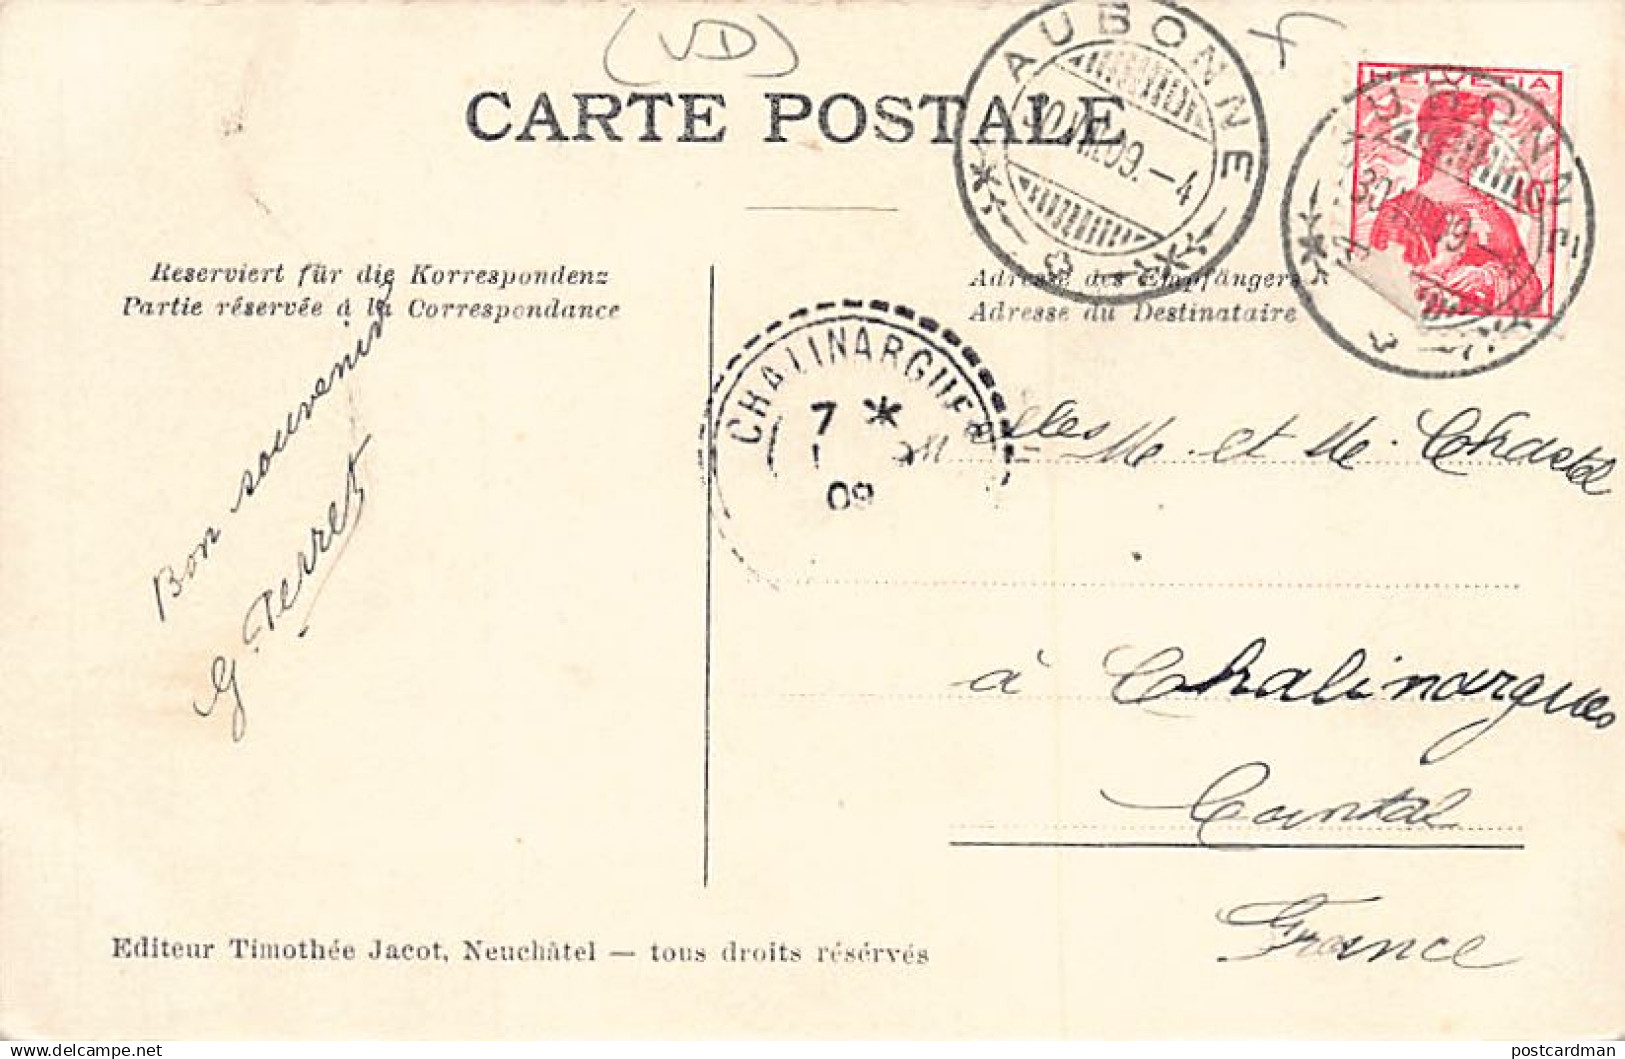 (VD)
CARTE POSTALE
AUBONNE
30.VII.09.–4
HELVETIA
10
AUBONNE
Reserviert für die Korrespondenz
Partie réservée á la Correspondance
Adresse des Empfängers
Adresse du Destinataire
Bon souvenir
G. Perret
CHALINARGUES
7 *
09
Mlles M. et M. Chastel
à Chalinargues
Cantal
France
Editeur Timothée Jacot, Neuchâtel — tous droits résérvés
postcardman